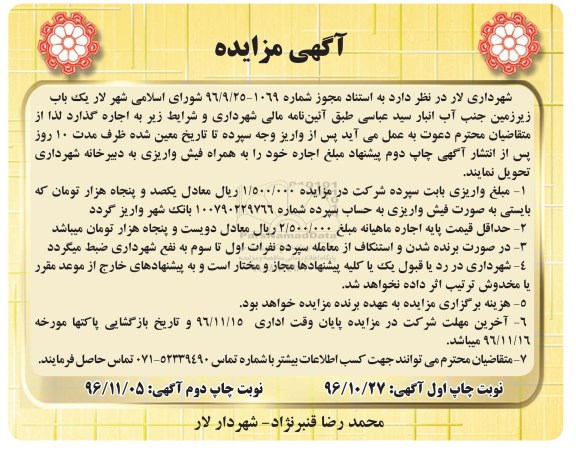 آگهی مزایده
شهرداری لار در نظر دارد به استناد مجوز شماره ۱۰۶۹-۹۶/۹/۲۵ شورای اسلامی شهر لار یک باب
زیرزمین جنب آب انبار سید عباسی طبق آئین‌نامه مالی شهرداری و شرایط زیر به اجاره گذارد لذا از
متقاضیان محترم دعوت به عمل می آید پس از واریز وجه سپرده تا تاریخ معین شده ظرف مدت ۱۰ روز
پس از انتشار آگهی چاپ دوم پیشنهاد مبلغ اجاره خود را به همراه فیش واریزی به دبیرخانه شهرداری
تحویل نمایند.
۱- مبلغ واریزی بابت سپرده شرکت در مزایده ۱/۵۰۰/۰۰۰ ریال معادل یکصد و پنجاه هزار تومان که
بایستی به صورت فیش واریزی به حساب سپرده شماره ۱۰۰۷۹۰۲۲۹۷۶۶ بانک شهر واریز گردد
۲- حداقل قیمت پایه اجاره ماهیانه مبلغ ۲/۵۰۰/۰۰۰ ریال معادل دویست و پنجاه هزار تومان میباشد
۳- در صورت برنده شدن و استنکاف از معامله سپرده نفرات اول تا سوم به نفع شهرداری ضبط میگردد
۴- شهرداری در رد یا قبول یک یا کلیه پیشنهادها مجاز و مختار است و به پیشنهادهای خارج از موعد مقرر
یا مخدوش ترتیب اثر داده نخواهد شد.
۵- هزینه برگزاری مزایده به عهده برنده مزایده خواهد بود.
۶- آخرین مهلت شرکت در مزایده پایان وقت اداری ۹۶/۱۱/۱۵ و تاریخ بازگشایی پاکتها مورخه
۹۶/۱۱/۱۶ میباشد.
۷- متقاضیان محترم می توانند جهت کسب اطلاعات بیشتر با شماره تماس ۵۲۳۳۹۴۹۰-۰۷۱ تماس حاصل فرمایند.
نوبت چاپ اول آگهی: ۹۶/۱۰/۲۷ نوبت چاپ دوم آگهی: ۹۶/۱۱/۰۵
محمد رضا قنبرنژاد- شهردار لار